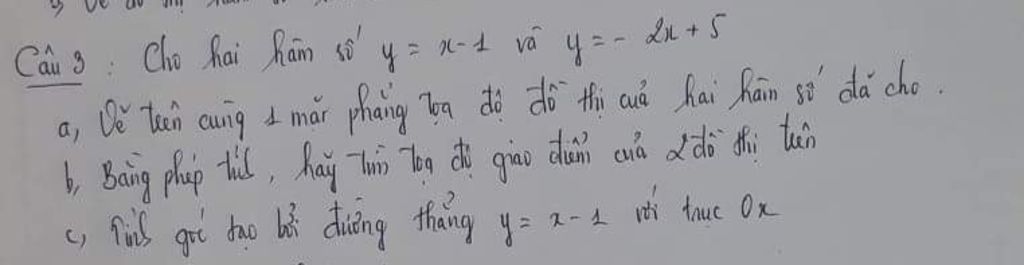 Câu 3 : Cho hai hàm số y = x - 1 và y = - 2x + 5
a, Vẽ trên cùng 1 mặt phẳng tọa độ đồ thị của hai hàm số đã cho.
b, Bằng phép tính, hãy tìm tọa độ giao điểm của 2 đồ thị trên
c, Tính góc tạo bởi đường thẳng y = x - 1 với trục Ox